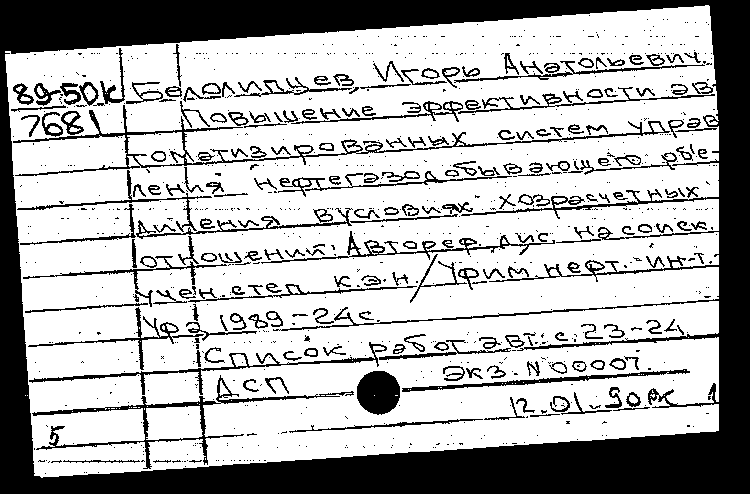 89-50К Белолипцев, Игорь Анатольевич.
7681 Повышение эффективности ав-
томатизированных систем управ-
ления нефтегазодобывающего объе-
динения в условиях хозрасчетных
отношений: Автореф. дис. на соиск.
учен. степ. к.э.н. / Уфим. нефт. ин-т.-
Уфа, 1989.-24с.
Список работ авт.: с. 23-24.
ДСП Экз. N 00007.
12.01.90
5